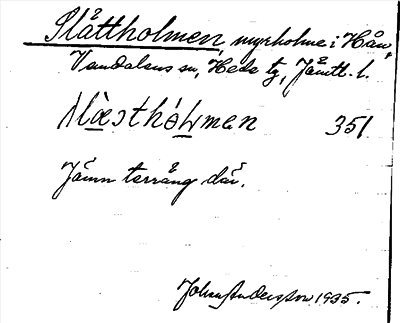 Slåttholmen, myrholme i Hån,
Vemdalens sn, Hede tg, Jämtl. l.
351
Jämn terräng där.
Johan Andersson 1935.